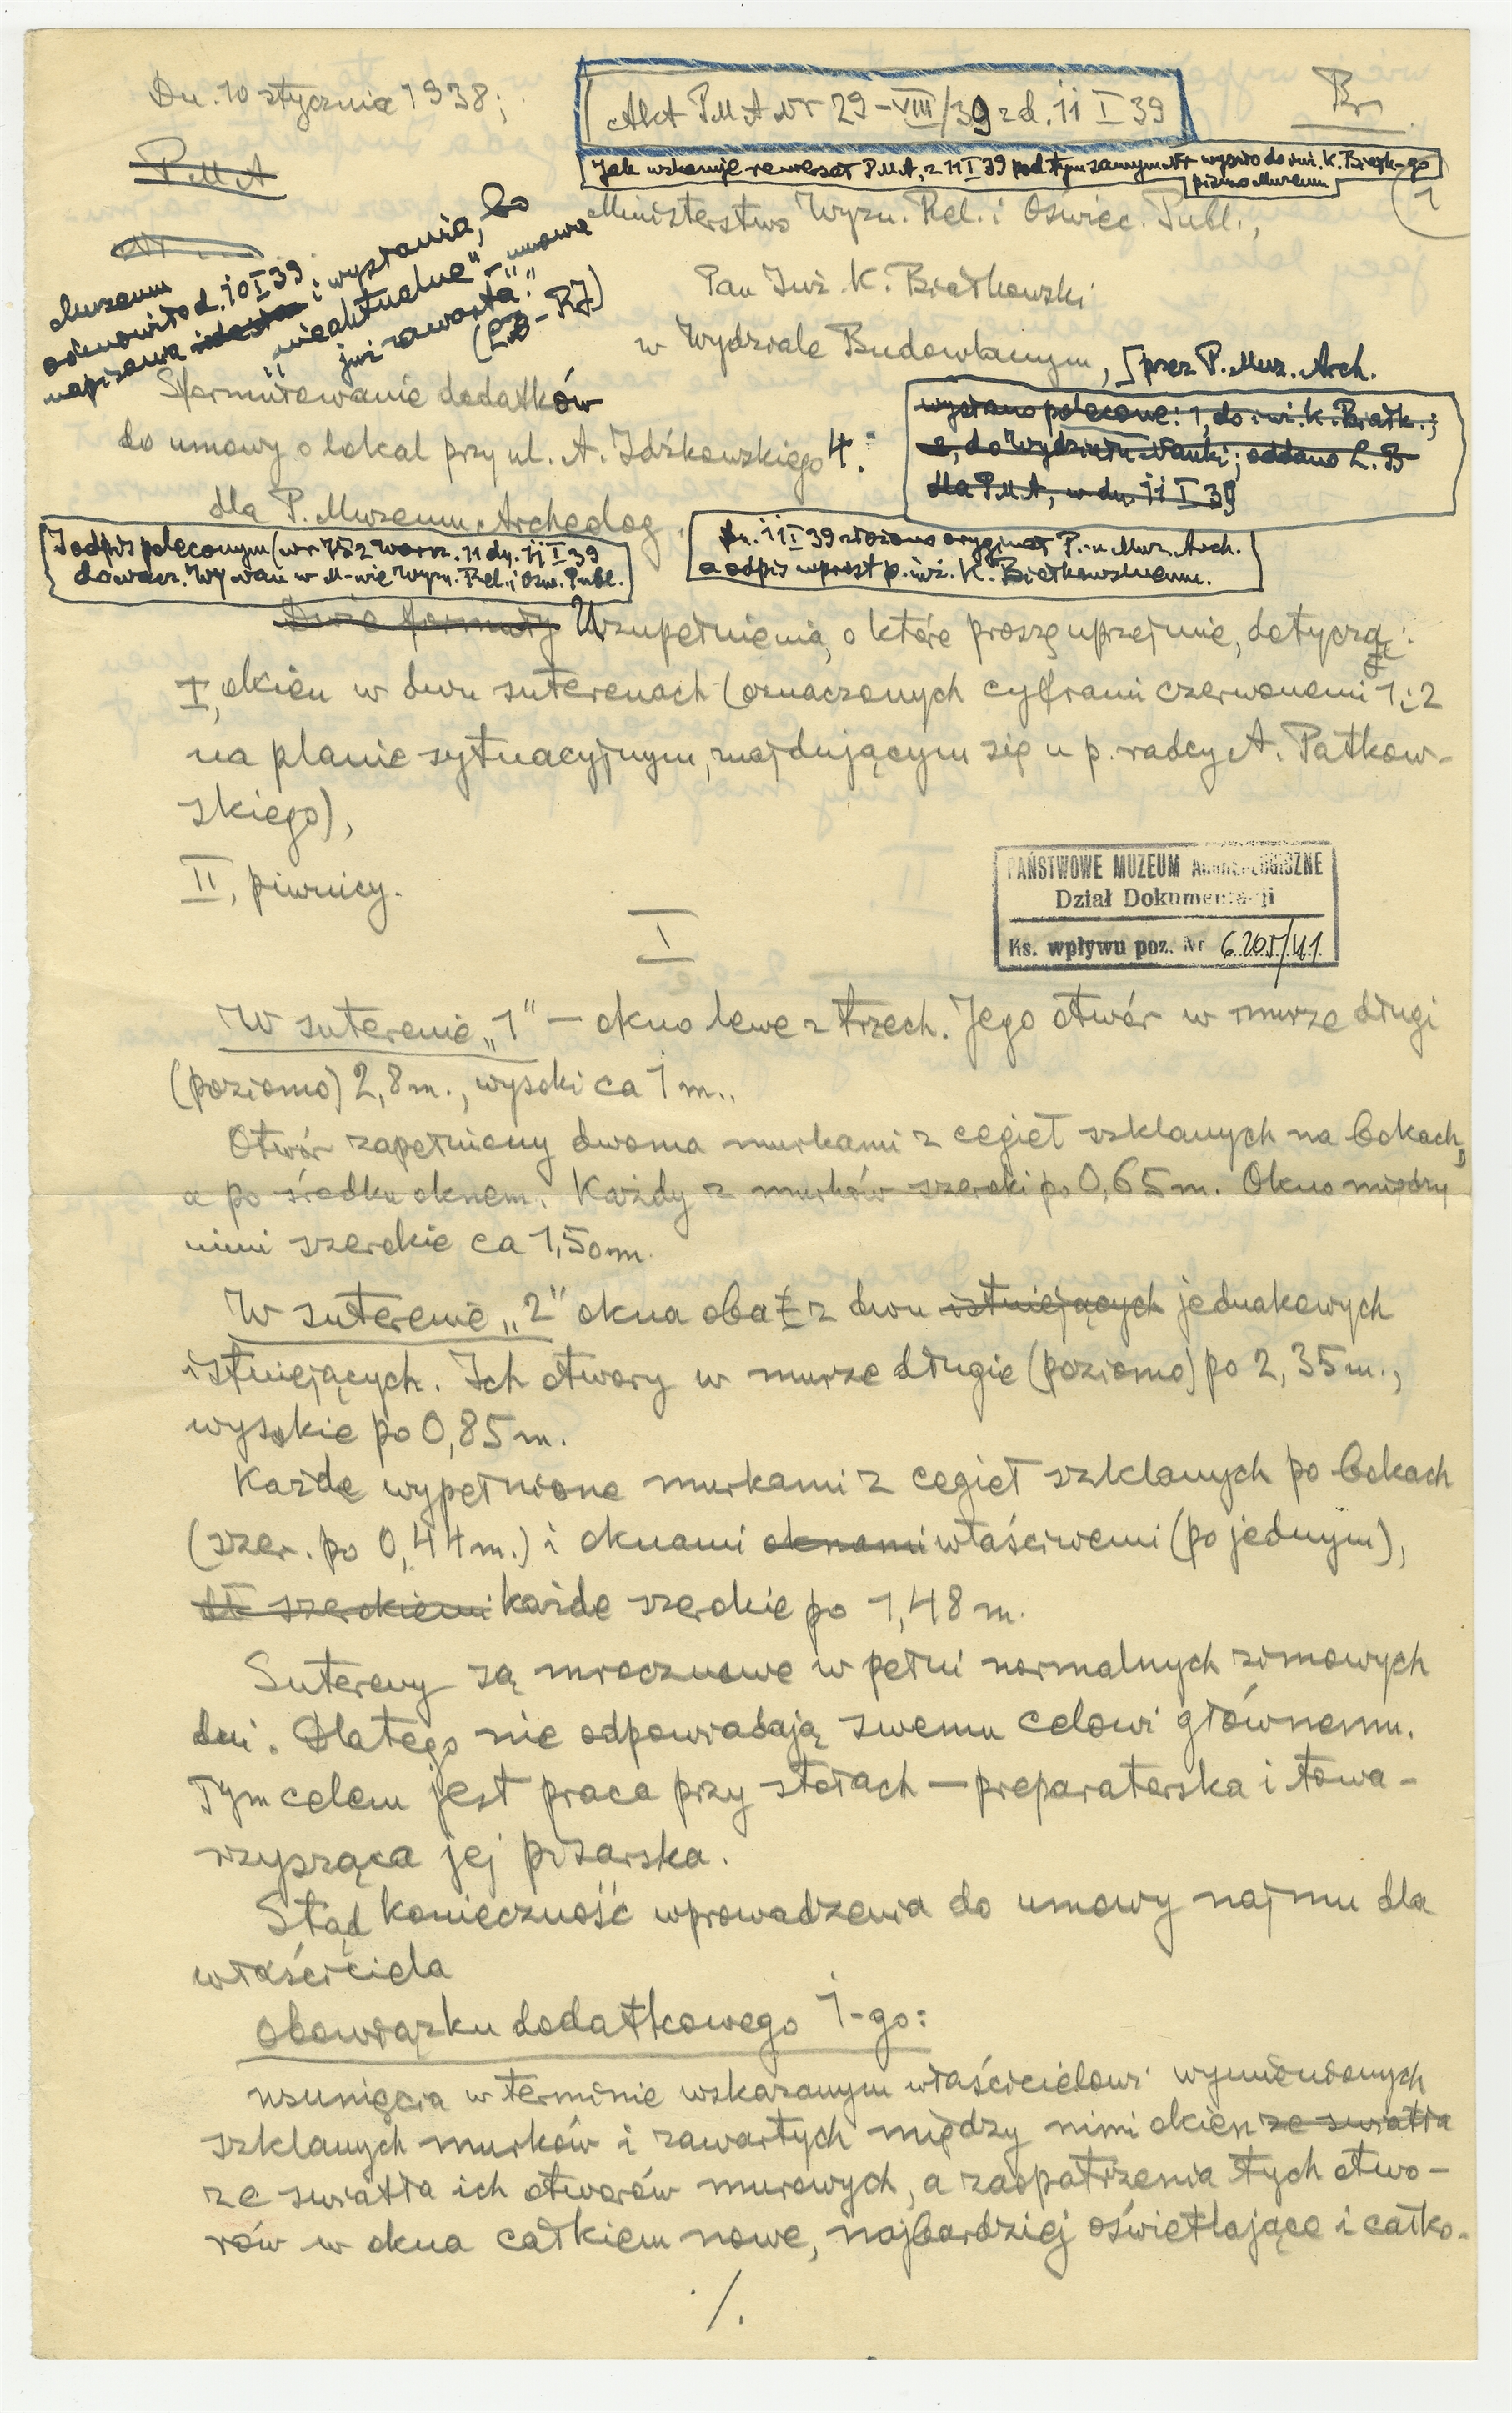 Dn. 10 stycznia 1938;
Akt PMA Nr 29-VIII/39 z d. 11 I 39
Br
P.M.A
Jak wskazuje rewersał P.M.A. z 11 I 39 pod tym samym Nr wyszło do inż. K. Białk-go
pismo Muzeum
1
Ministerstwo Wyzn. Rel. i Oświec. Publ.,
Muzeum
odmówiło d. 10 I 39
napisania i wysłania, bo
"nieaktualne" - umowa
już zawarta".
(LB - RJ)
Pan Inż. K. Białkowski
w Wydziale Budowlanym,
przez P. Muz. Arch.
Sformułowanie dodatków
do umowy o lokal przy ul. A. Idźkowskiego 4.
dla P. Muzeum Archeolog.
wysłano polecone: 1, do inż. K. Białk.;
2, do Wydziału Nauki; oddano L. B
dla PMA, w dn. 11 I 39
1 odpis poleconym (nr 782 Warsz. 11 dn. 11 I 39
do nacz. Wydz. Nau w M-wie Wyzn. Rel. i Ośw. Publ.
Dn. 11 I 39 złożono oryginał P.-u Muz. Arch.
a odpis wprost p. inż. K. Białkowskiemu.
Dwie formuły Uzupełnienia, o które proszę uprzejmie, dotyczą:
I, okien w dwu suterenach (oznaczonych cyframi czerwonemi 1 i 2
na planie sytuacyjnym, znajdującym się u p. radcy A. Patkow-
skiego),
II, piwnicy.
PAŃSTWOWE MUZEUM ARCHEOLOGICZNE
Dział Dokumentacji
Ks. wpływu poz. Nr 6.205/41
I
W suterenie „1" – okno lewe z trzech. Jego otwór w murze długi
(poziomo) 2,8 m., wysoki ca 1 m..
Otwór zapełniony dwoma murkami z cegieł szklanych na bokach,
a po środku oknem. Każdy z murków szeroki po 0,65 m. Okno między
nimi szerokie ca 1,50 m.
W suterenie „2" okna oba z dwu istniejących jednakowych
istniejących. Ich otwory w murze długie (poziomo) po 2,35 m.,
wysokie po 0,85 m.
Każde wypełnione murkami z cegieł szklanych po bokach
(szer. po 0,44 m.) i oknami oknami właściwemi (po jednym),
szerokiemi każde szerokie po 1,48 m.
Sutereny są mrocznawe w pełni normalnych zimowych
dni. Dlatego nie odpowiadają swemu celowi głównemu.
Tym celem jest praca przy stołach – preparatorska i towa-
rzysząca jej pisarska.
Stąd konieczność wprowadzenia do umowy najmu dla
właściciela
obowiązku dodatkowego 1-go:
usunięcia w terminie wskazanym właścicielowi wymienionych
szklanych murków i zawartych między nimi okien ze światła
ze światła ich otworów murowych, a zaopatrzenia tych otwo-
rów w okna całkiem nowe, najbardziej oświetlające i całko-
./.